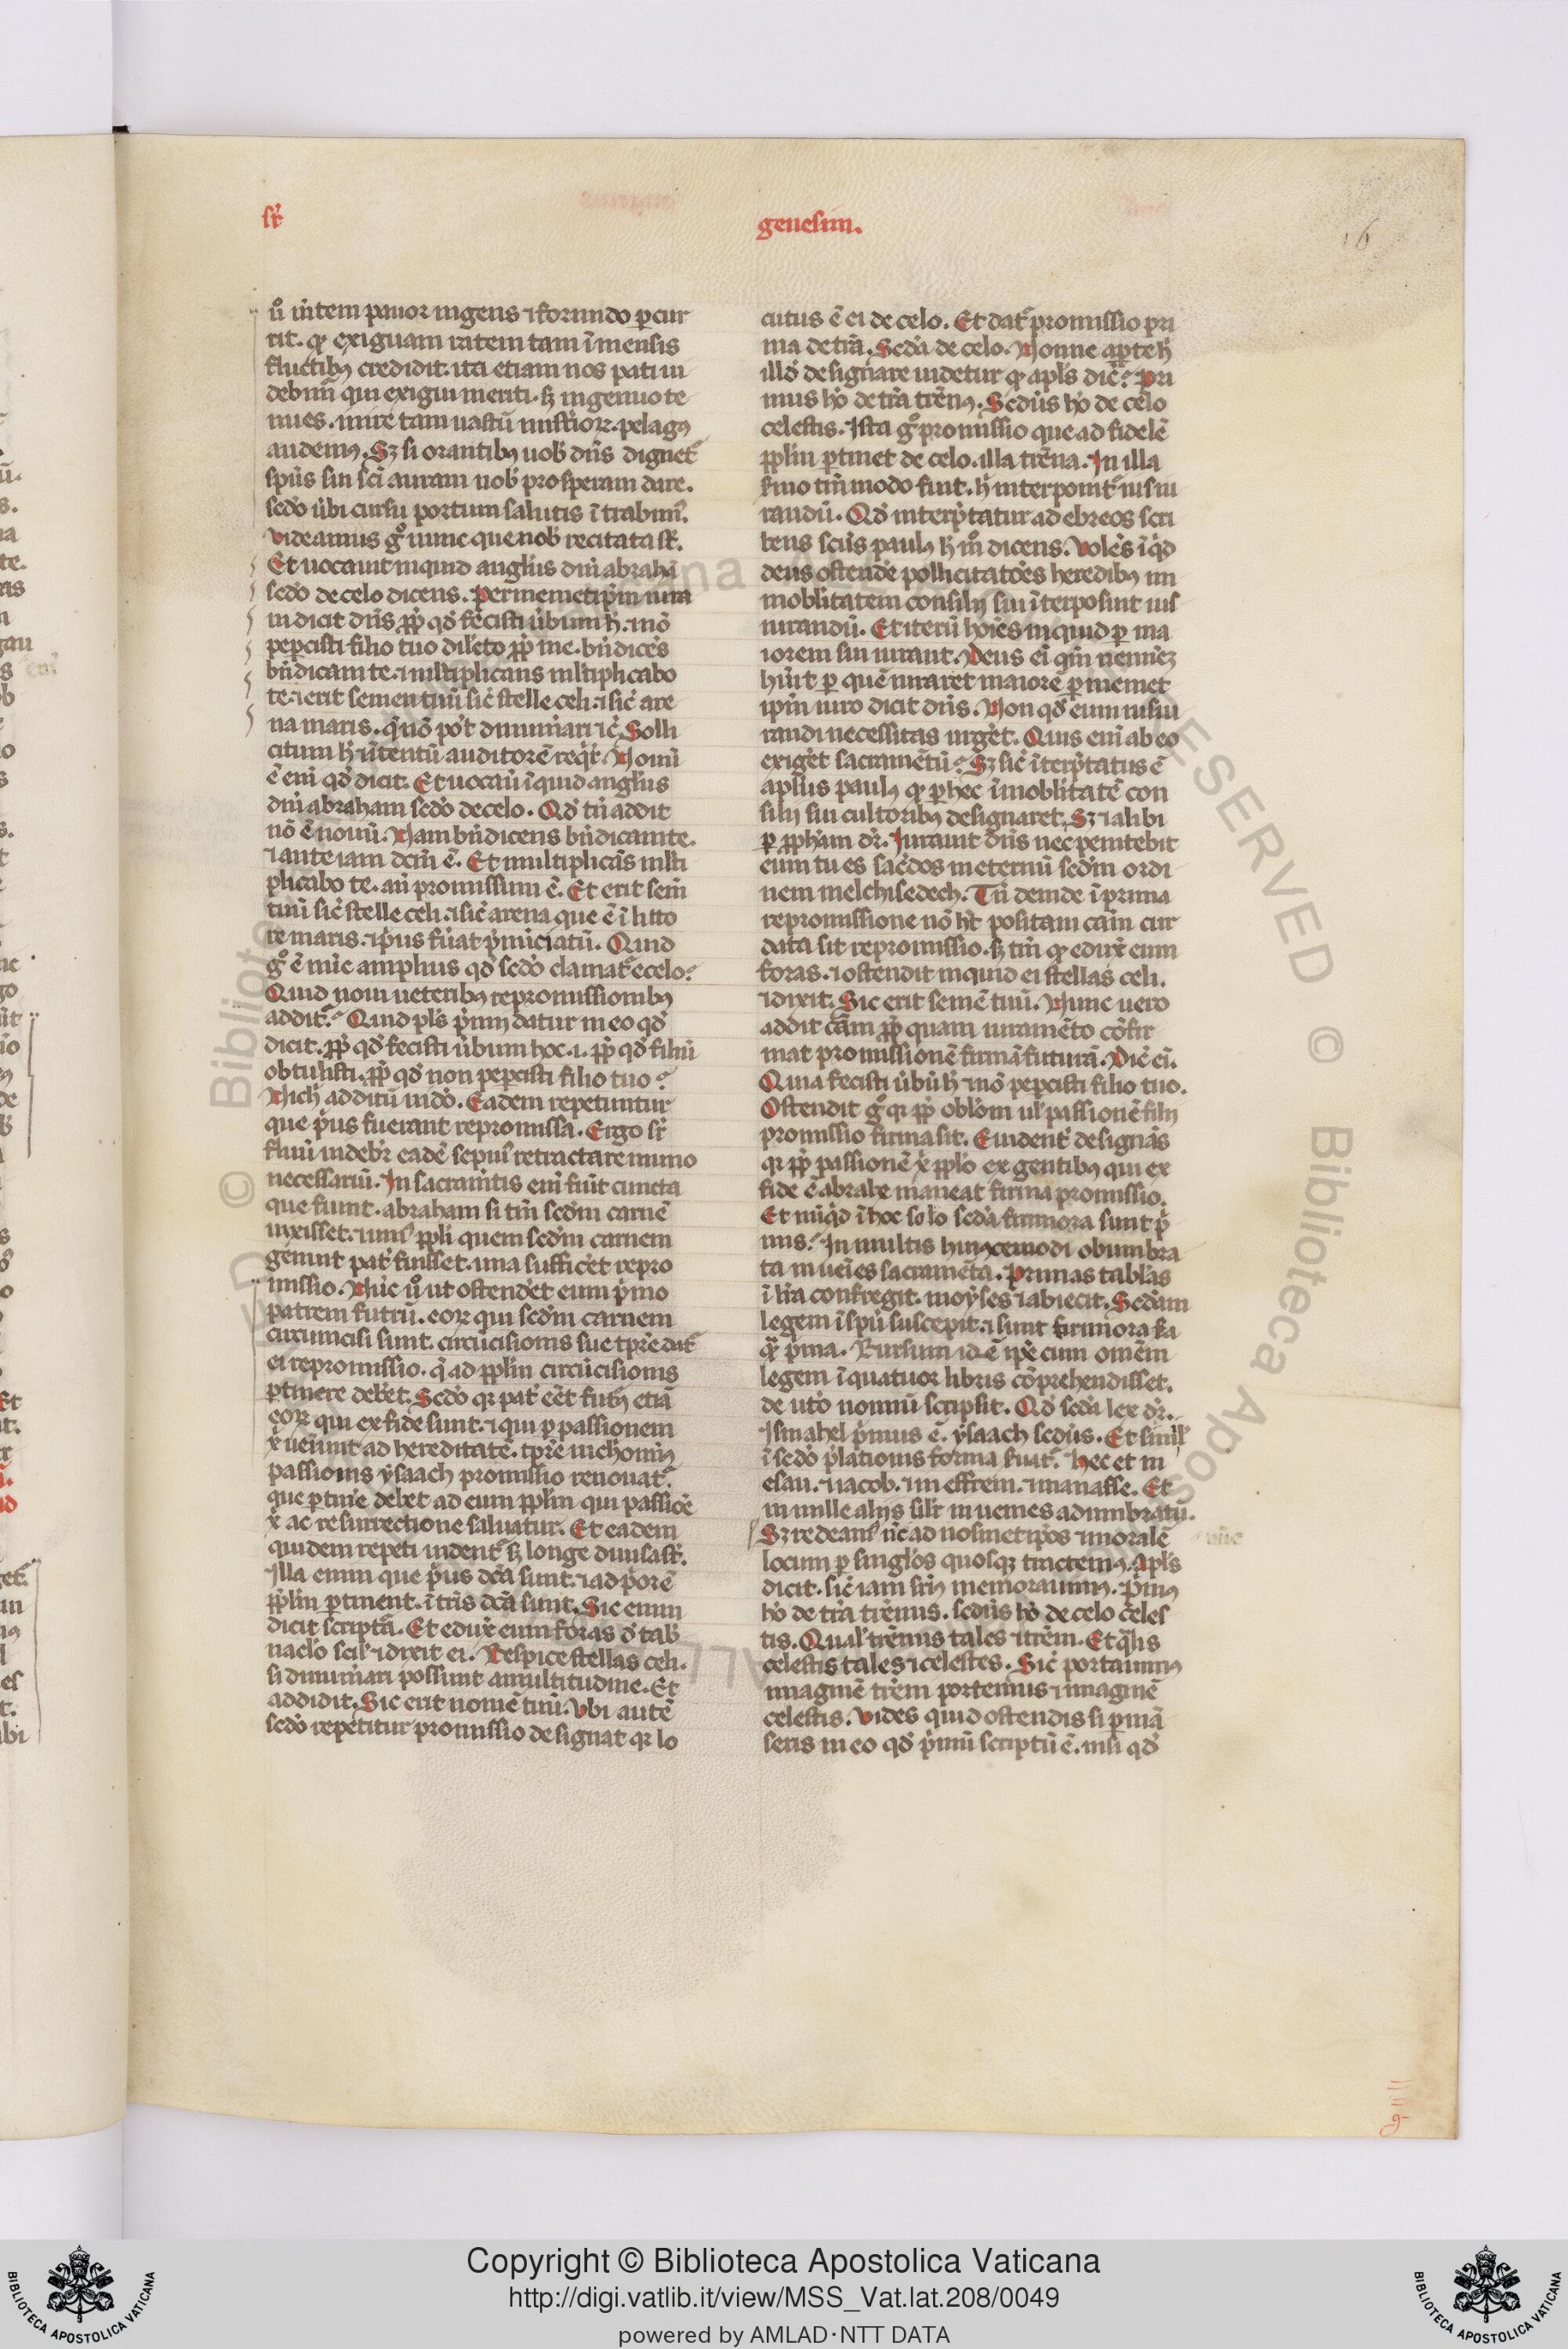 sr̄
genesim.
16
uͦ intem pauor ingens ⁊ formido ꝑcur
rit. qꝛ exiguam ratem tam īmensis
fluctibꝰ credidit. ita etiam nos patim̄
debim̄ qui exigui meriti. sꝫ ingenio te
nues. inire tam uastū mist̾ioꝝ. pelagꝰ
audemꝰ. Sꝫ si orantibꝰ uob̾ dn̄s dignet᷑
sp̄us sui sc̄i auram nob̾ prosperam dare.
sedō ūbi cursu portum salutis ītrabim᷑.
Videamus gͦ nunc que nob̾ recitata st̄.
Et uocauit inquid angl̾us dn̄i abrahā
sedō de celo dicens. Per memetip̄m iura
ui dicit dn̄s pp̄ qđ fecisti ūbum h̄. ⁊nō
peꝑcisti filio tuo dilc̄to pp̄ me. bn̄dicēs
bn̄dicam te. ⁊ ml̄tiplicans ml̄tiplicabo
te. ⁊ erit semen tuū sic̄ stelle celi. ⁊ sic̄ are
na maris. q̄ nō pōt dinum̄ari ⁊c̄ Solli
citum h̄ ⁊ īntentū auditorē req̄r̄. Nouū
ē eni qđ dicit. Et uocauī īquid angl̾us
dn̄i abraham sedō de celo. Qđ tn̄ addit
nō ē nouū. Nam bn̄dicens bn̄dicam te.
⁊ ante iam dc̄m ē. Et multiplicās ml̄ti
plicabo te. an̄ promissum ē. Et erit sem̄
tuū sic̄ stelle celi. ⁊ sic̄ arena que ē ī litto
re maris. ⁊ p̄us fūat p̄nūciatū. Quid
gͦ ē nūc amplius qđ sedō clamat᷑ e celo?
Quid noui ueteribꝰ repromissionibꝰ
addit᷑? Quid pl̾s p̄mij datur in eo qđ
dicit. pp̄ qđ fecisti ūbum hoc. i. pp̄ qđ filiū
obtulisti. pp̄ qđ non peꝑcisti filio tuo?
Nich̄ additū uidō. Eadem repetuntur
que p̄us fuerant repromissa. Ergo sr̄
fluū uidebr̄ eadē sepiu᷑ retractare immo
necessariū. In sacram̄tis enī fiūt cuncta
que fiunt. abraham si tm̄ sedm carnē
uixisset. ⁊ uni᷑ ppl̾i quem sedm carnem
genuit pat̾ fuisset. una sufficēt repro
missio. Nūc uͦ ut ostendet eum p̄mo
patrem futrū. eoꝝ qui sedm carnem
circumcisi sunt. circūcisionis sue tp̄re dat᷑
ei repromissio. q̄ ad ppl̾m circūcisionis
ꝑtinere debet. Sedō qꝛ pat̾ eēt futꝰ etiā
eoꝝ qui ex fide sunt. ⁊ qui ꝑ passionem
x̄ ueniunt ad hereditatē. tp̄re nichominꝰ
passionis ysaach promissio renouat᷑.
que ꝑtine debet ad eum ppl̾m qui passiōe
x̄ ac resurrectione saluatur. Et eadem
quidem repeti uident᷑ sꝫ longe diuisa st̄.
Illa enim que p̄us dc̄a sunt. ⁊ ad p̄orē
ppl̾m ꝑtinent. ī t̄ris dc̄a sunt. Sic enim
dicit scriptā. Et edux̄ eum foras đ tab̾
naclo scil̾. ⁊ dixit ei. Respice stellas celi.
si dinum̄ari possunt a multitudine. Et
addidit. Sic erit nomē tuū. Vbi autē
sedō repetitur promissio designat qꝛ lo
cutus ē ei de celo. Et dat᷑ promissio pri
ma de t̄ra. Sedā de celo. Nonne aꝑte h̄
illđ designare uidetur qꝛ apl̾s dic̄? Pri
mus hō de t̄ra t̄renꝰ. Sedūs hō de celo
celestis. Ista gͦ promissio que ad fidelē
ppl̾m ꝑtinet de celo. illa t̄rena. In illa
s̄mo tm̄ modo fuit. h̄ interponit᷑ iusiu
randū. Qđ interp̄tatur ad ebreos scri
bens sc̄us paulꝰ h̄ mͦ dicens. Volēs īq̄d
deus ostende pollicitatōes heredibꝰ im
mobl̾itatem consilij sui īterposuit ius
iurandū. Et iterū hoīes inquid ꝑ ma
iorem sui iurant. Deus eī qm̄ neminēꝫ
hūit ꝑ quē iuraret maiorē ꝑ memet
ip̄m iuro dicit dn̄s. Non qđ eum iusiu
randi necessitas urget. Quis enī ab eo
exiget sacramētū? Sꝫ sic̄ īterp̄tatus ē
apl̾us paulꝰ qꝛ ꝑ hec īmobl̾itatē con
silij sui cultoribꝰ designaret. Sꝫ ⁊ alibi
ꝑ pph̄am dr̄. Jurauit dn̄s nec penitebit
eum tu es sac̄dos in eternū sedm ordi
nem melchisedech. Tn̄ deinde ī prima
repromissione nō h̄t positam cām cur
data sit repromissio. sꝫ tm̄ qꝛ edux̄ eum
foras. ⁊ ostendit inquid ei stellas celi.
⁊ dixit. Sic erit semē tuū. Nunc uero
addit cām pp̄ quam iuramēto cōfir
mat promissionē firmā futurā. Dic̄ eī.
Quia fecisti ūbū h̄ ⁊ nō peꝑcisti filio tuo.
Ostendit gͦ qꝛ pp̄ oblōm ul̾ passionē filij
promissio firma sit. Euident̾ designās
qꝛ pp̄ passionē x̄ ppl̾o ex gentibꝰ qui ex
fide ē abrahe maneat firma promissio.
Et nūq̄d ī hoc solo sedā firmiora sunt p̄
mis? In multis hui᷑cemodi obumbra
ta inuēies sacramēta. Primas tabl̾as
ī l̄ra confregit. moyses ⁊ abiecit. Sedam
legem ī sp̄u suscepit. ⁊ sunt firmiora s̄a
q̄ p̄ma. Rursum id ē ip̄e cum omēm
legem ī quatuor libris cōprehendisset.
deutō nomiū scripsit. Qđ sedā lex dr̄.
Ismahel p̄mus ē. ysaach sedūs. Et simil᷑
ī sedō p̄lationis forma s̄uat᷑. Hec et in
esau. ⁊ iacob. ⁊ in effrem. ⁊ manasse. Et
in mille alijs sil̾r inuenies adumbratū.
Sꝫ redeam᷑ nc̄ ad nosmetip̄os ⁊ moralē
locum ꝑ singl̾os quosqꝫ tractemꝰ. Apl̾s
dicit. sic̄ iam sr̄iꝰ memorauimꝰ. P̄mꝰ
hō de t̄ra t̄renus. sedūs hō de celo celes
tis. Qual̾ t̄renus tales ⁊ t̄rem. Et q̄lis
celestis tales ⁊ celestes. Sic̄ portauimꝰ
imaginē t̄rem portemus ⁊ imaginē
celestis. Vides quid ostendis si ꝑmā
seris in eo qđ p̄mū scriptū ē. nisi qđ
Copyright © Biblioteca Apostolica Vaticana
http://digi.vatlib.it/view/MSS_Vat.lat.208/0049
powered by AMLAD·NTT DATA